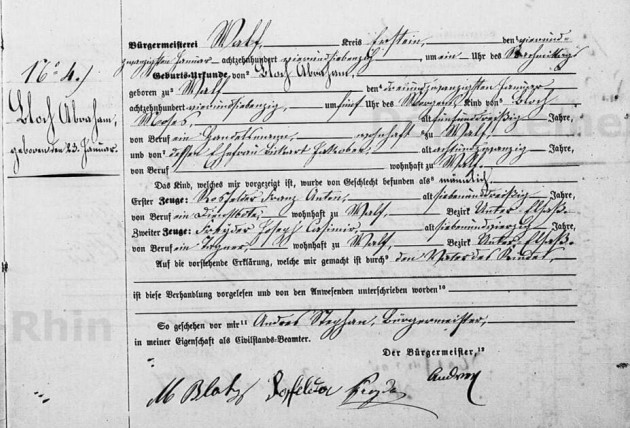 N° 4.)
Bloch Abraham,
geboren den 23. Januar.
Bürgermeisterei Walf, Kreis Erstein, den vierund-
zwanzigsten Januar achtzehnhundert vierundsiebenzig, um ein Uhr des Nachmittags
Geburts-Urkunde von Bloch Abraham,
geboren zu Walf den dreiundzwanzigsten Januar,
achtzehnhundert vierundsiebenzig, um fünf Uhr des Morgens, Kind von Bloch
Moses alt fünfunddreißig Jahre,
von Beruf ein Handelsmann, wohnhaft zu Walf,
und von dessen Ehefrau Bickart alt achtundzwanzig Jahre,
von Beruf wohnhaft zu Walf,
Das Kind, welches mir vorgezeigt ist, wurde von Geschlecht befunden als männlich
Erster Zeuge: Rosfelder Franz Anton, alt siebenunddreißig Jahre,
von Beruf ein Dienstbote, wohnhaft zu Walf, Bezirk Unter-Elsaß.
Zweiter Zeuge: Joseph Casimir, alt siebenundvierzig Jahre,
von Beruf ein wohnhaft zu Walf, Bezirk Unter-Elsaß.
Auf die vorstehende Erklärung, welche mir gemacht ist durch den Vater des Kindes,
ist diese Verhandlung vorgelesen und von den Anwesenden unterschrieben worden
So geschehen vor mir Andres Stephan, Bürgermeister,
in meiner Eigenschaft als Civilstands-Beamter.
Der Bürgermeister,
M Bloch Rosfelder Andres
Rhin